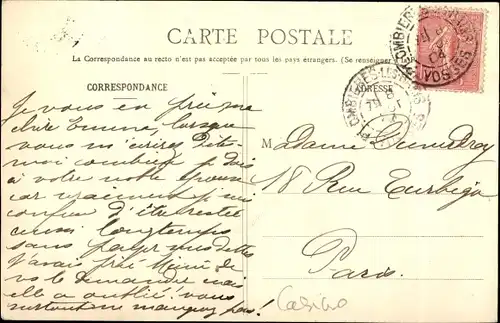 CARTE POSTALE
La Correspondance au recto n'est pas acceptée par tous les pays étrangers. (Se renseigner
CORRESPONDANCE
ADRESSE
PLOMBIERES-LES-
VOSGES
PLOMBIERES-LES-BAINS
Je vous en prie ma
chère Emma, lorsque
vous m'écrirez dites-
moi combien je dois
à votre
car vraiment je suis
confuse d'être restée
aussi longtemps
sans payer mes dettes
J'avais prié Mimi de
vs le demander mais
elle a oublié! vous
surtout ne manquez pas!
Madame
18 Rue Turbigo
Paris
Casino